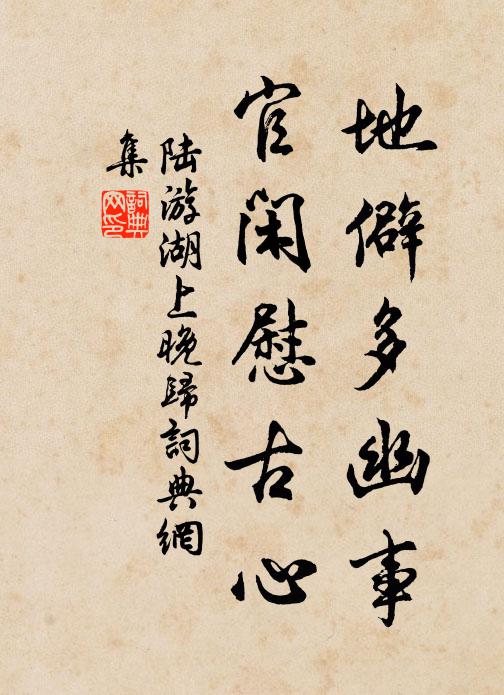 地僻多幽事
官閑慰古心
陸游湖上晚歸詞典網
集
詞典
网印